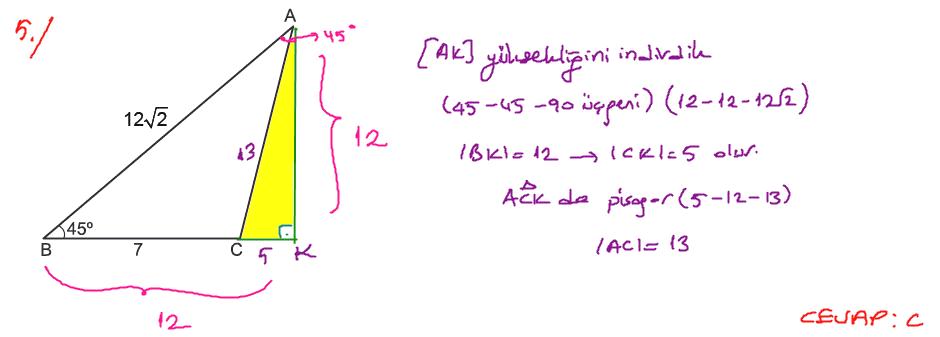 5./
A
45°
[AK] yüksekliğini indirdik
(45-45-90 üçgeni) (12-12-12√2)
12√2
13
12
|BK|= 12 → |CK|=5 olur.
ACK da pisagor (5-12-13)
|AC|= 13
45°
B
7
C
5
K
12
CEVAP: C